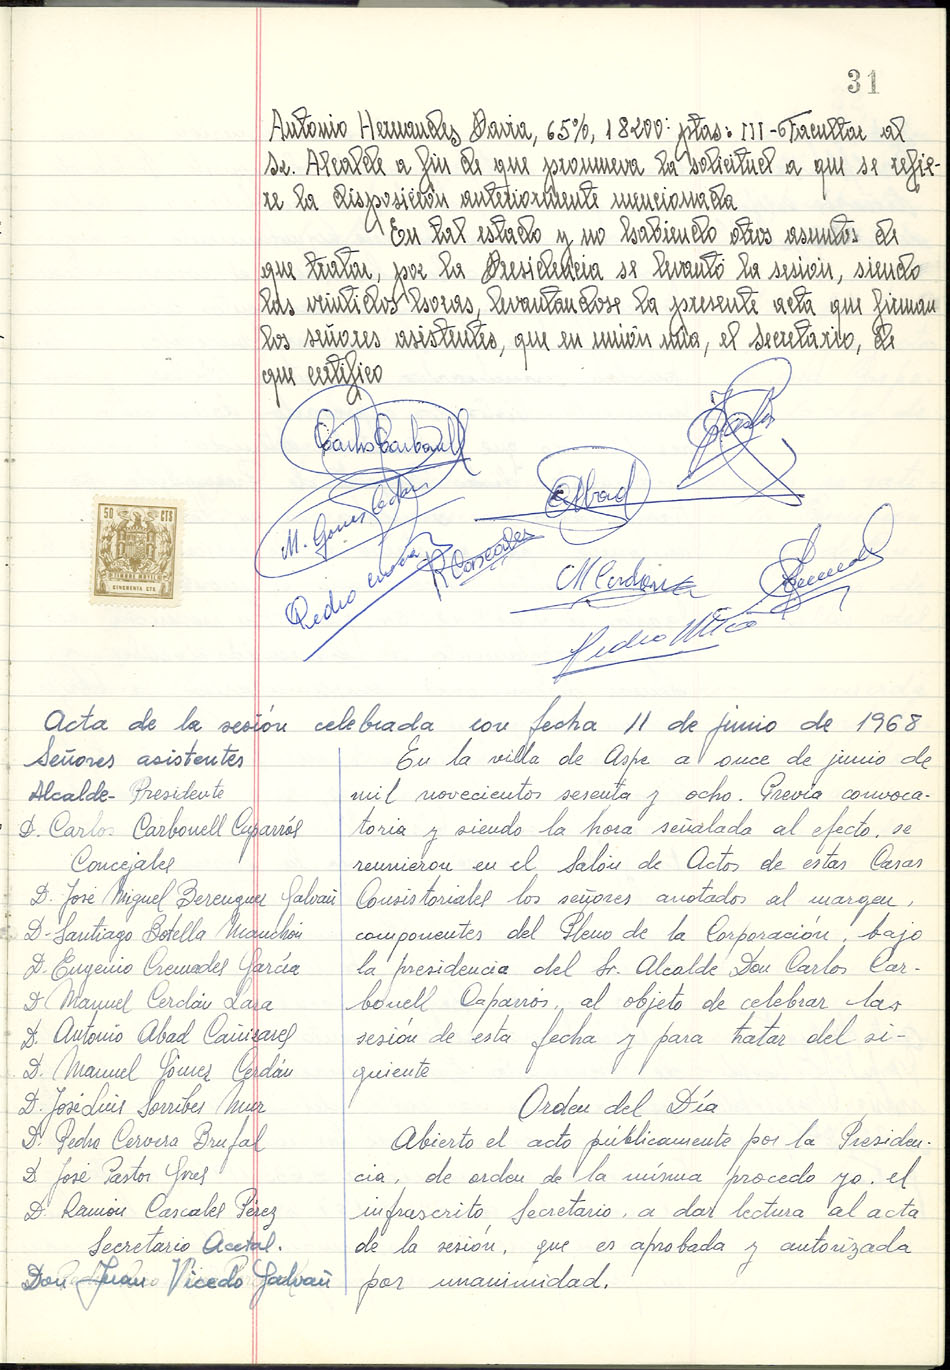 31
Antonio Hernandes Davia, 65%, 18200' ptas: III - Facultar al
Sr. Alcalde a fin de que promueva la solicitud a que se refie-
re la disposición anteriormente mencionada
En tal estado y no habiendo otros asuntos de
que tratar, por la Presidencia se levantó la sesion, siendo
las veintidos horas, levantandose la presente acta que firman
los señores asistentes, que en unión mia, el Secretario, de
que certifico
Carlos Carbonell
Pastor
Abad
M. Gomez Cerdan
R Cascales
Pedro
M Cerdan
Pedro
50 CTS
CINCUENTA CTS
Acta de la sesión celebrada con fecha 11 de junio de 1968
Señores asistentes
Alcalde- Presidente
D. Carlos Carbonell Caparrós
Concejales
D. José Miguel Berenguer Galvañ
D- Santiago Botella Manchón
D. Eugenio Cremades García
D Manuel Cerdán Lara
D. Antonio Abad Cañizares
D. Manuel Gómez Cerdán
D. José Luis Sorribes Mur
D. Pedro Cervera Brufal
D José Pastor Yvres
D. Ramón Cascales Pérez
Secretario Acctal.
Don Juan Vicedo Galvañ
En la villa de Aspe a once de junio de
mil novecientos sesenta y ocho. Previa convoca-
toria y siendo la hora señalada al efecto, se
reunieron en el Salón de Actos de estas Casas
Consistoriales los señores anotados al margen,
componentes del Pleno de la Corporación, bajo
la presidencia del Sr. Alcalde Don Carlos Car-
bonell Caparrós, al objeto de celebrar las
sesión de esta fecha y para tratar del si-
guiente
Orden del Día
Abierto el acto públicamente por la Presiden-
cia, de orden de la misma procedo yo, el
infrascrito Secretario, a dar lectura al acta
de la sesión, que es aprobada y autorizada
por unanimidad.